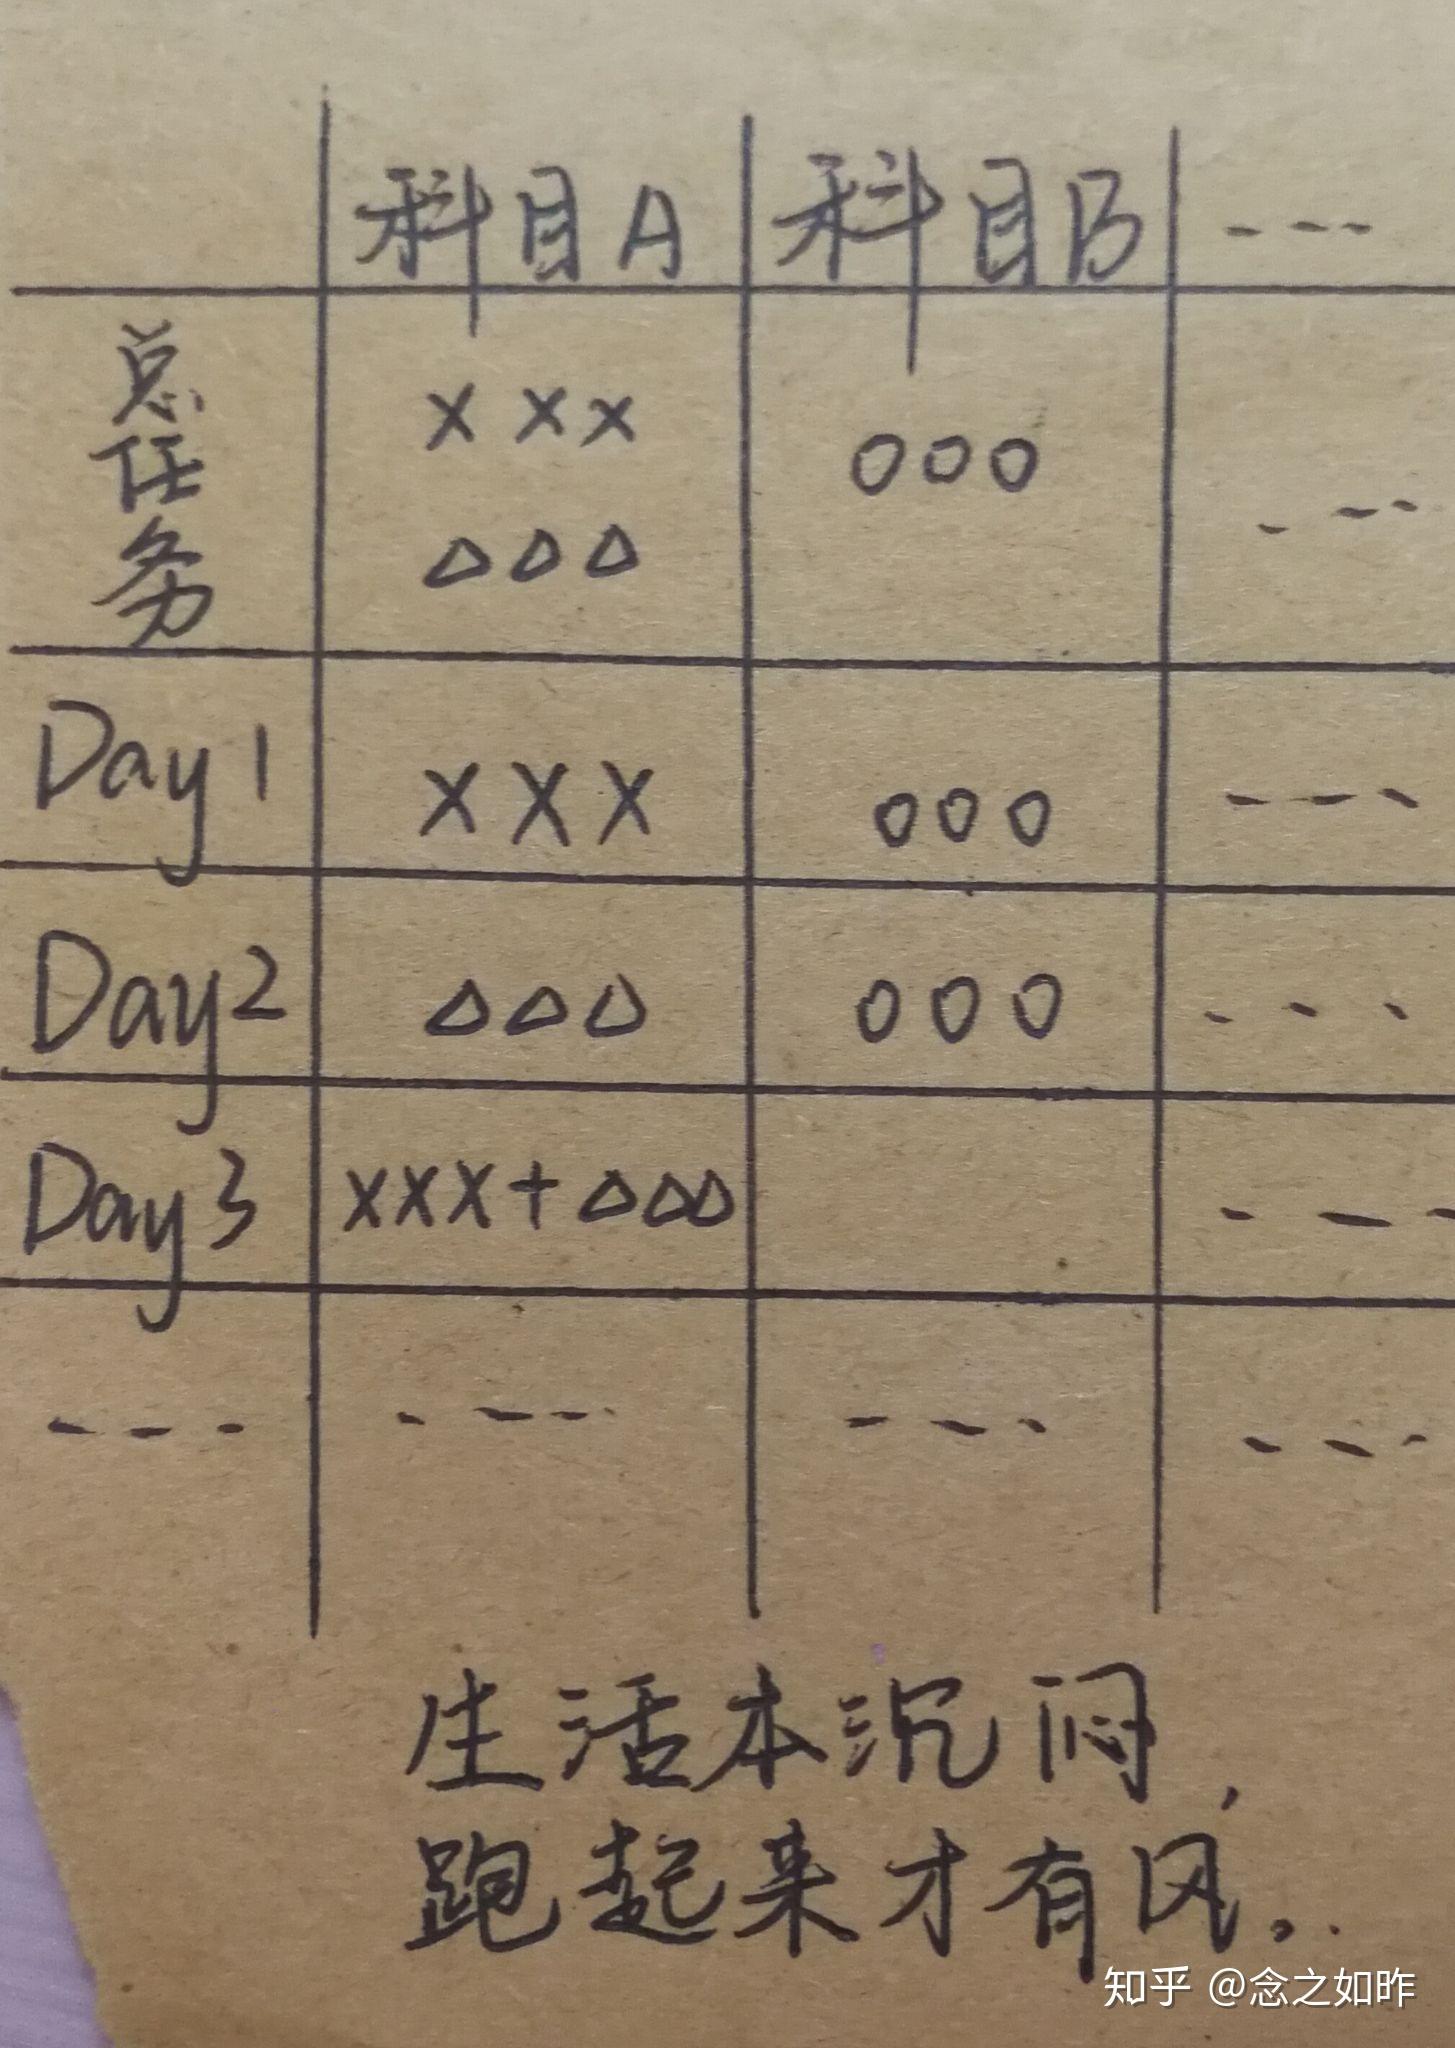 科目A 科目B ---
总任务 ××× 000 ---
△△△
Day1 ××× 000 ---
Day2 △△△ 000 ---
Day3 ×××+△△△ ---
--- --- --- ---
生活本沉闷,
跑起来才有风。
知乎 @念之如昨